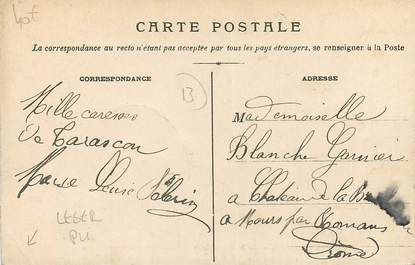 Lot
CARTE POSTALE
La correspondance au recto n'étant pas acceptée par tous les pays étrangers, se renseigner à la Poste
CORRESPONDANCE
B
Mille caresses
de Tarascon
Marie Louise
LEGER
PLI
ADRESSE
Mademoiselle
Blanche Garnier
a Chateau de la
a Mours par Romans
Drôme